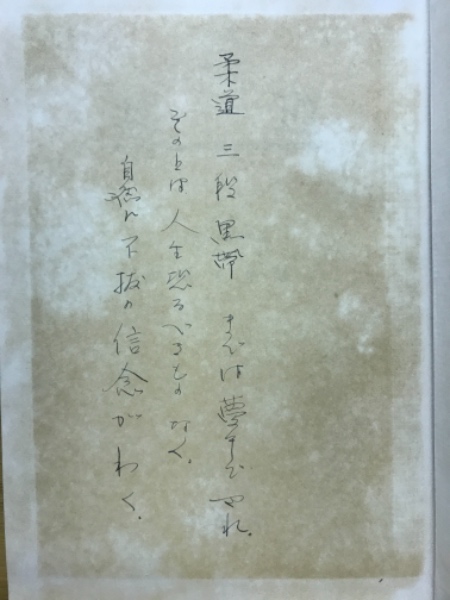 柔道 三段 黒帯 までは 夢中で やれ。
その上は 人生恐るべきもの なく、
自然に 不抜の 信念が わく。